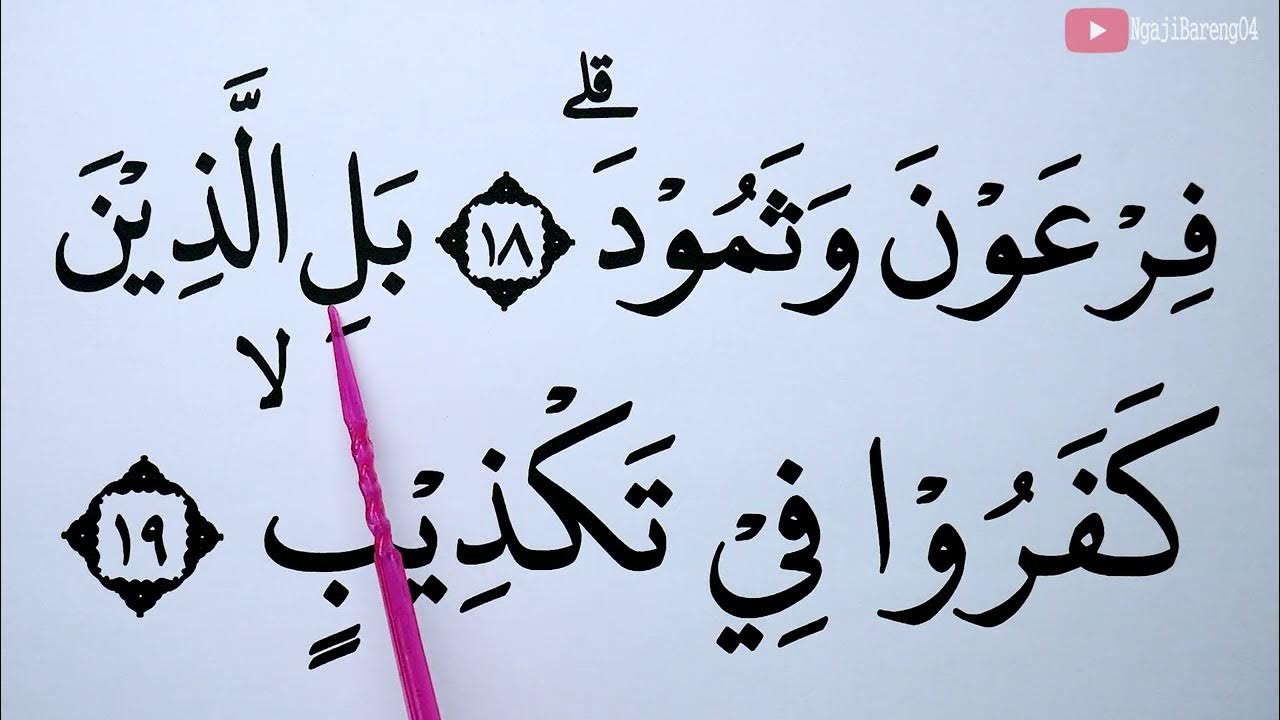 NgajiBareng04
فِرْعَوْنَ وَثَمُوْدَ ۗ ١٨ بَلِ الَّذِيْنَ
كَفَرُوْا فِيْ تَكْذِيْبٍ ۙ ١٩